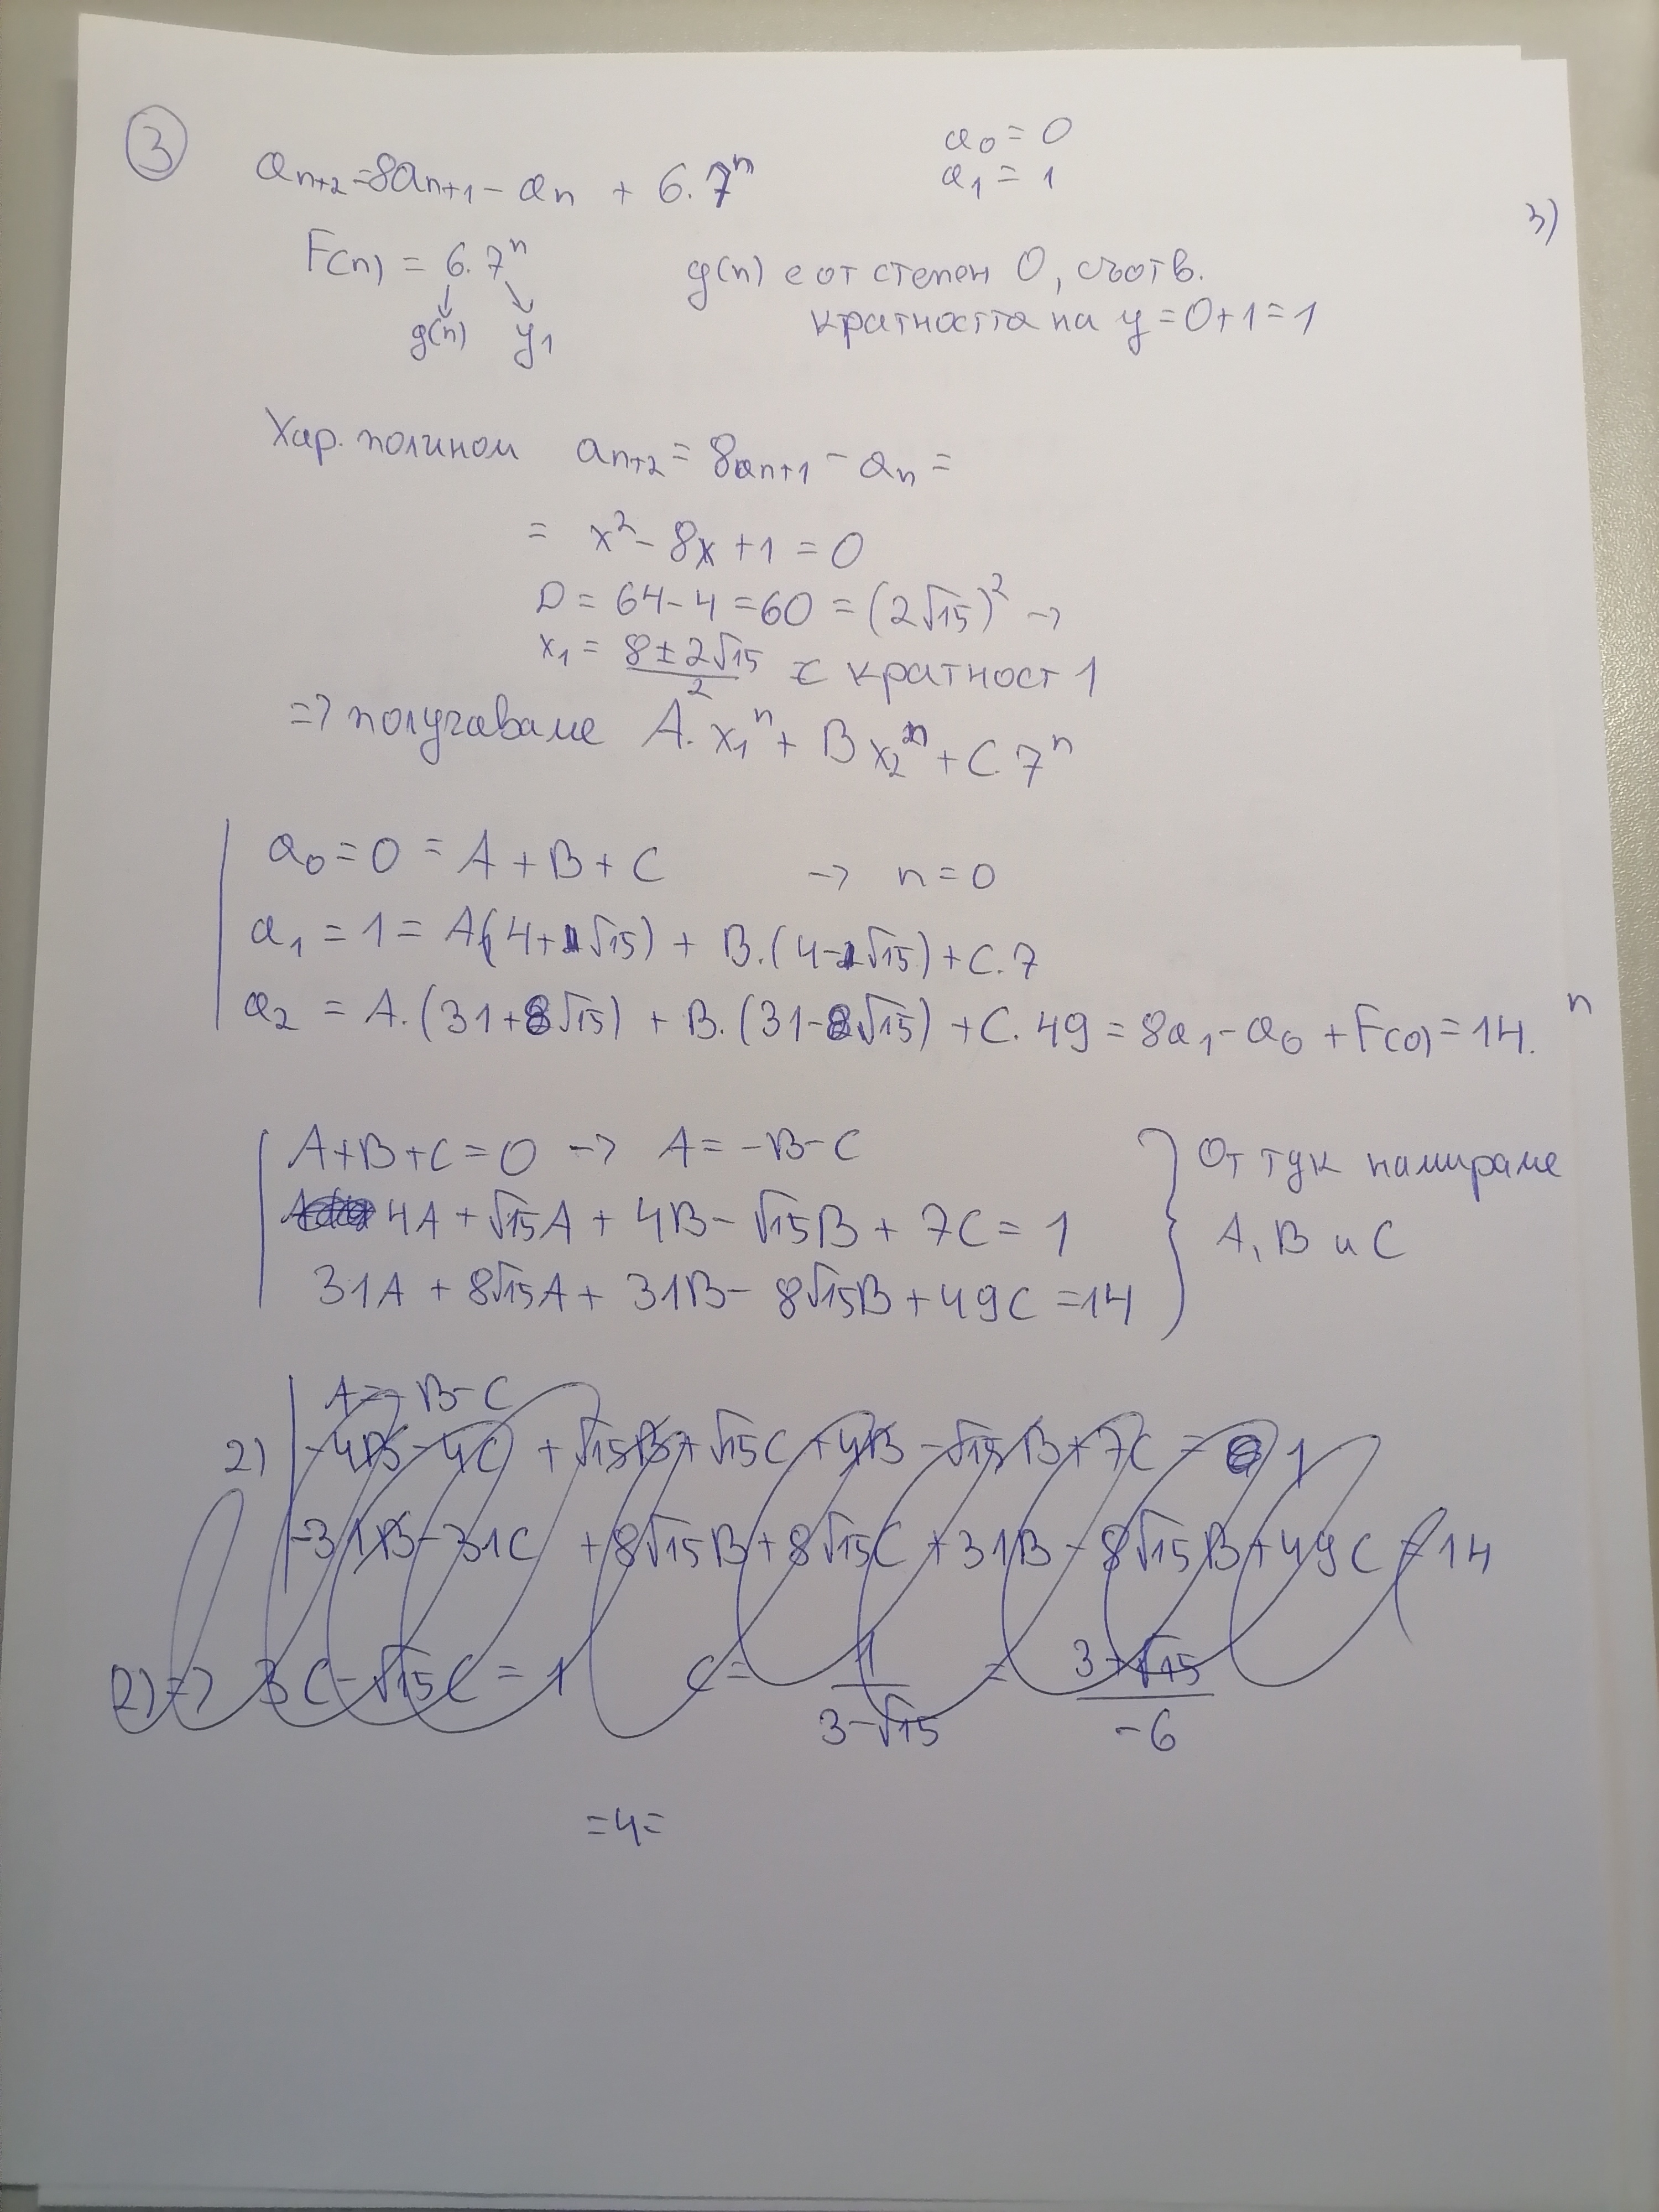 3
a₀ = 0
aₙ₊₂=8aₙ₊₁ - aₙ + 6.7ⁿ
a₁ = 1
3)
F(n) = 6.7ⁿ
g(n) е от степен 0, съотв.
g(n) y₁
кратността на y = 0+1=1
Хар. полином aₙ₊₂ = 8aₙ₊₁ - aₙ =
= x² - 8x + 1 = 0
D = 64-4 = 60 = (2√15)² ->
x₁ = (8 ± 2√15)/2 с кратност 1
=> получаваме A.x₁ⁿ + Bx₂ⁿ + C.7ⁿ
a₀ = 0 = A + B + C -> n = 0
a₁ = 1 = A(4+√15) + B.(4-√15) + C.7
a₂ = A.(31+8√15) + B.(31-8√15) + C.49 = 8a₁ - a₀ + F(0) = 14.
n
A+B+C=0 -> A = -B-C
4A + √15A + 4B - √15B + 7C = 1
31A + 8√15A + 31B - 8√15B + 49C = 14
От тук намираме
A, B и C
A = -B-C
2) -4B - 4C + √15B + √15C + 4B - √15B + 7C = 1
-31B - 31C + 8√15B + 8√15C + 31B - 8√15B + 49C = 14
2) => 3C - √15C = 1 C = 1/(3-√15) = (3+√15)/-6
=4=